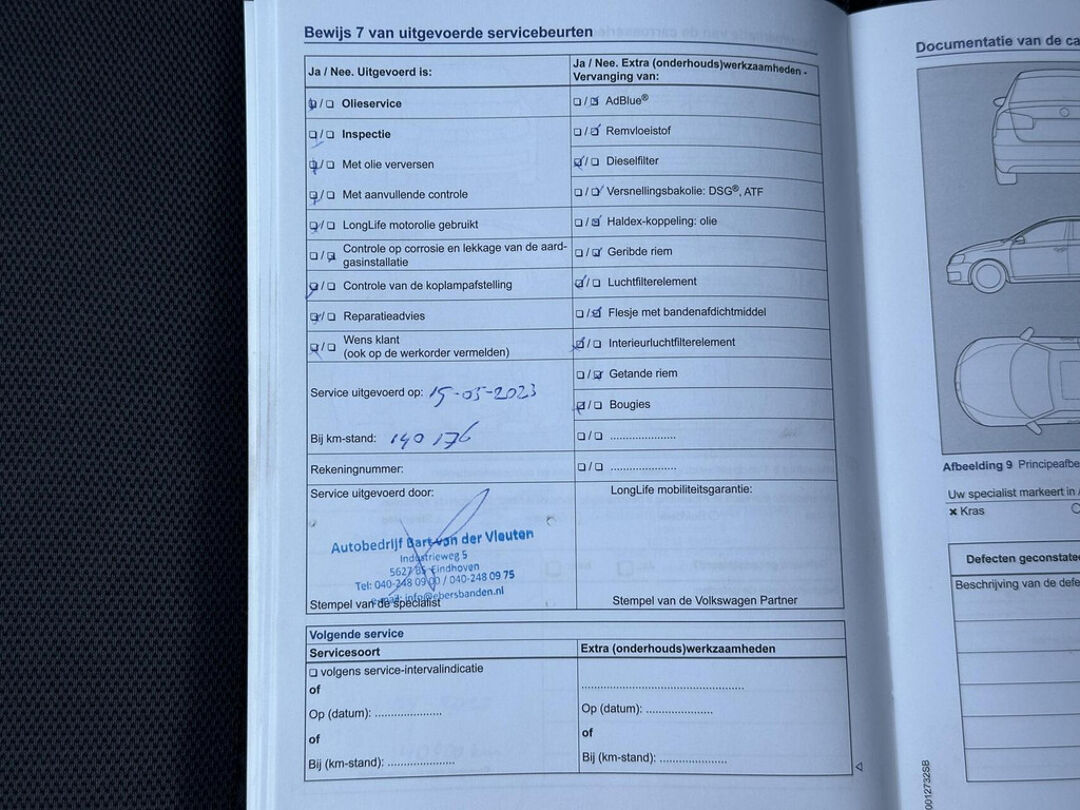 Bewijs 7 van uitgevoerde servicebeurten
Ja / Nee. Uitgevoerd is:
❑ / ❑ Olieservice
❑ / ❑ Inspectie
❑ / ❑ Met olie verversen
❑ / ❑ Met aanvullende controle
❑ / ❑ LongLife motorolie gebruikt
❑ / ❑ Controle op corrosie en lekkage van de aard-
gasinstallatie
❑ / ❑ Controle van de koplampafstelling
❑ / ❑ Reparatieadvies
❑ / ❑ Wens klant
(ook op de werkorder vermelden)
Service uitgevoerd op: 15-05-2023
Bij km-stand: 140 176
Rekeningnummer:
Service uitgevoerd door:
Autobedrijf Bart van der Vleuten
Industrieweg 5
5627 BS Eindhoven
Tel: 040-248 09 00 / 040-248 09 75
e-mail: info@ebersbanden.nl
Stempel van de specialist
Ja / Nee. Extra (onderhouds)werkzaamheden -
Vervanging van:
❑ / ❑ AdBlue®
❑ / ❑ Remvloeistof
❑ / ❑ Dieselfilter
❑ / ❑ Versnellingsbakolie: DSG®, ATF
❑ / ❑ Haldex-koppeling: olie
❑ / ❑ Geribde riem
❑ / ❑ Luchtfilterelement
❑ / ❑ Flesje met bandenafdichtmiddel
❑ / ❑ Interieurluchtfilterelement
❑ / ❑ Getande riem
❑ / ❑ Bougies
❑ / ❑ .....................
❑ / ❑ .....................
LongLife mobiliteitsgarantie:
Stempel van de Volkswagen Partner
Volgende service
Servicesoort
❑ volgens service-intervalindicatie
of
Op (datum): .....................
of
Bij (km-stand): .....................
Extra (onderhouds)werkzaamheden
.....................................................
Op (datum): .....................
of
Bij (km-stand): .....................
Documentatie van de ca
Afbeelding 9 Principeafbe
Uw specialist markeert in
× Kras
Defecten geconstatee
Beschrijving van de defe
0012732SB